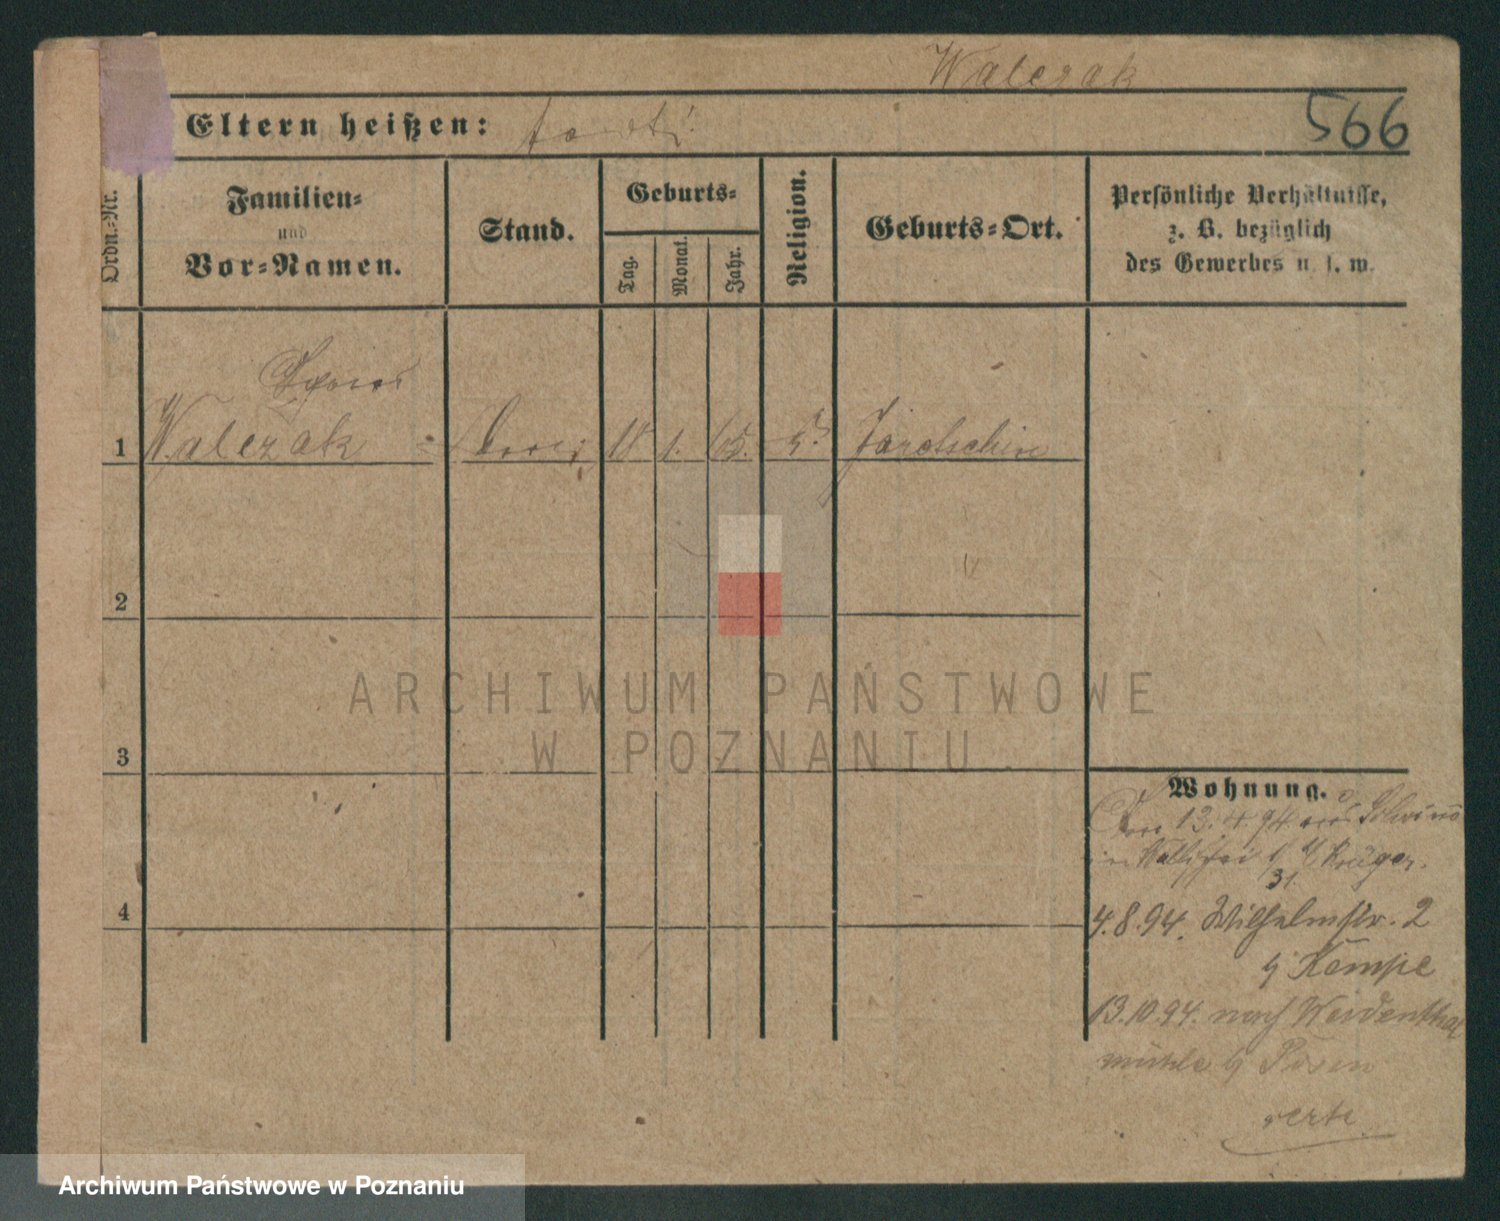 Walczak
Eltern heißen: todt
566
Ordn.-Nr.
Familien-
und
Vor-Namen.
Stand.
Geburts-
Tag.
Monat.
Jahr.
Religion.
Geburts-Ort.
Persönliche Verhältnisse,
z. B. bezüglich
des Gewerbes u. s. w.
1 Walczak 1. 65. Jarotschin
2
3
4
Wohnung.
13. 94. aus
Krüger.
31.
4.8.94. Wilhelmstr. 2
b/ Kempe
13.10.94. nach Weidenthal
mühle b/ Posen
verte
ARCHIWUM PAŃSTWOWE
W POZNANIU
Archiwum Państwowe w Poznaniu